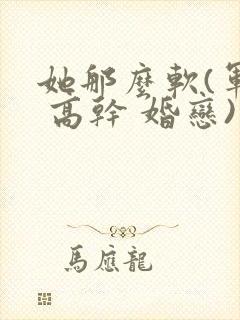 她那麼軟(軍
高幹 婚戀)
馬應龍